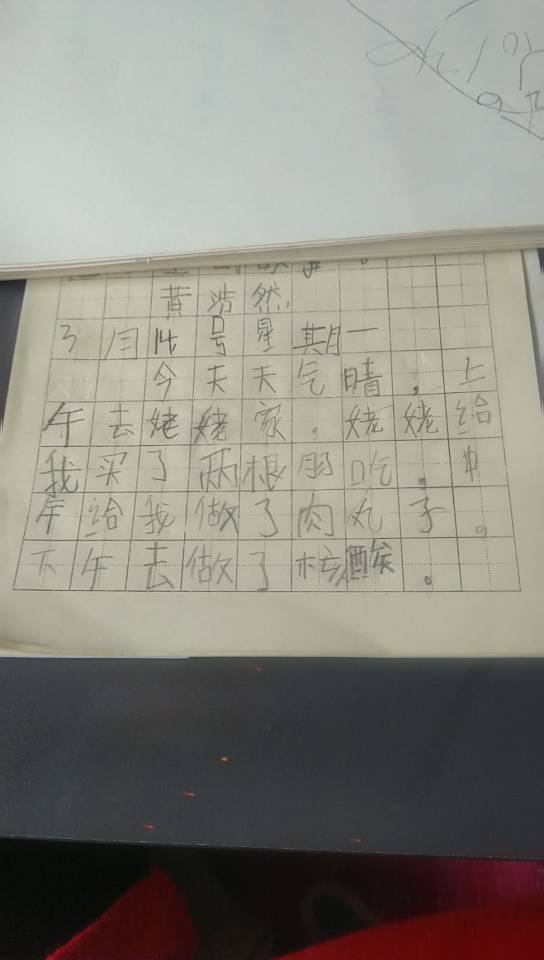 黄浩然
3月14号星期一
今天天气晴，上
午去姥姥家。姥姥给
我买了两根肠吃。中
午给我做了肉丸子。
下午去做了核酸。